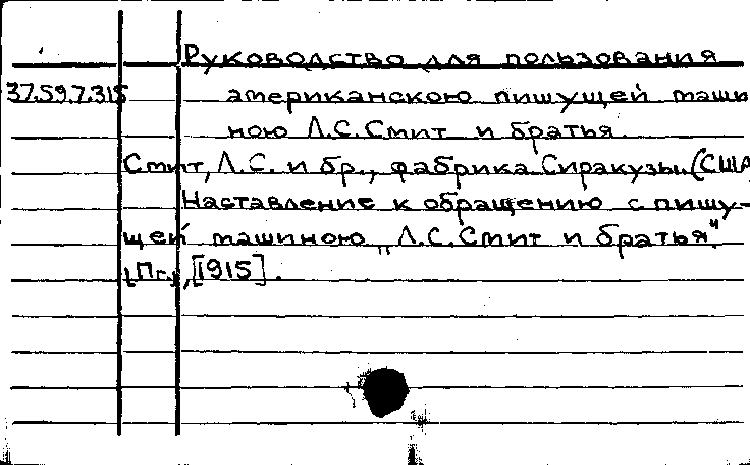 Руководство для пользования
37.59.7.315 американскою пишущей маши
ною Л.С.Смит и братья.
Смит, Л.С. и бр., фабрика.Сиракузы.(США
Наставление к обращению с пишу-
щей машиною „Л.С.Смит и братья".
[Пг.], [1915].